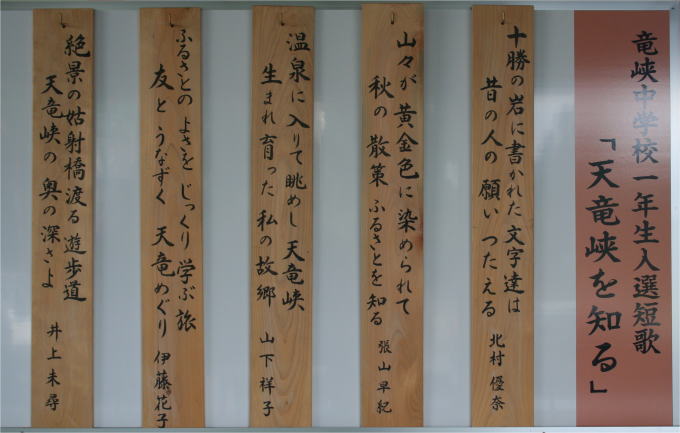 竜峡中学校一年生入選短歌
「天竜峡を知る」
十勝の岩に書かれた文字達は
昔の人の願いつたえる
北村優奈
山々が黄金色に染められて
秋の散策ふるさとを知る
張山早紀
温泉に入りて眺めし天竜峡
生まれ育った私の故郷
山下祥子
ふるさとのよさをじっくり学ぶ旅
友とうなずく天竜めぐり
伊藤花子
絶景の姑射橋渡る遊歩道
天竜峡の奥の深さよ
井上未尋